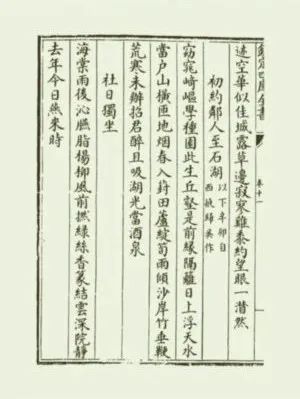 欽定四庫全書
卷十一
遠空華似佳城露草邊寂寥雞黍約望眼一潸然
初約鄰人至石湖 以下辛卯自
西掖歸吳作
窈窕崎嶇學種園此生丘壑是前緣隔籬日上浮天水
當户山橫匝地烟春入葑田蘆綻筍雨傾沙岸竹垂鞭
荒寒未辦招君醉且吸湖光當酒泉
社日獨坐
海棠雨後沁臙脂楊柳風前撚綠絲香篆結雲深院静
去年今日燕來時